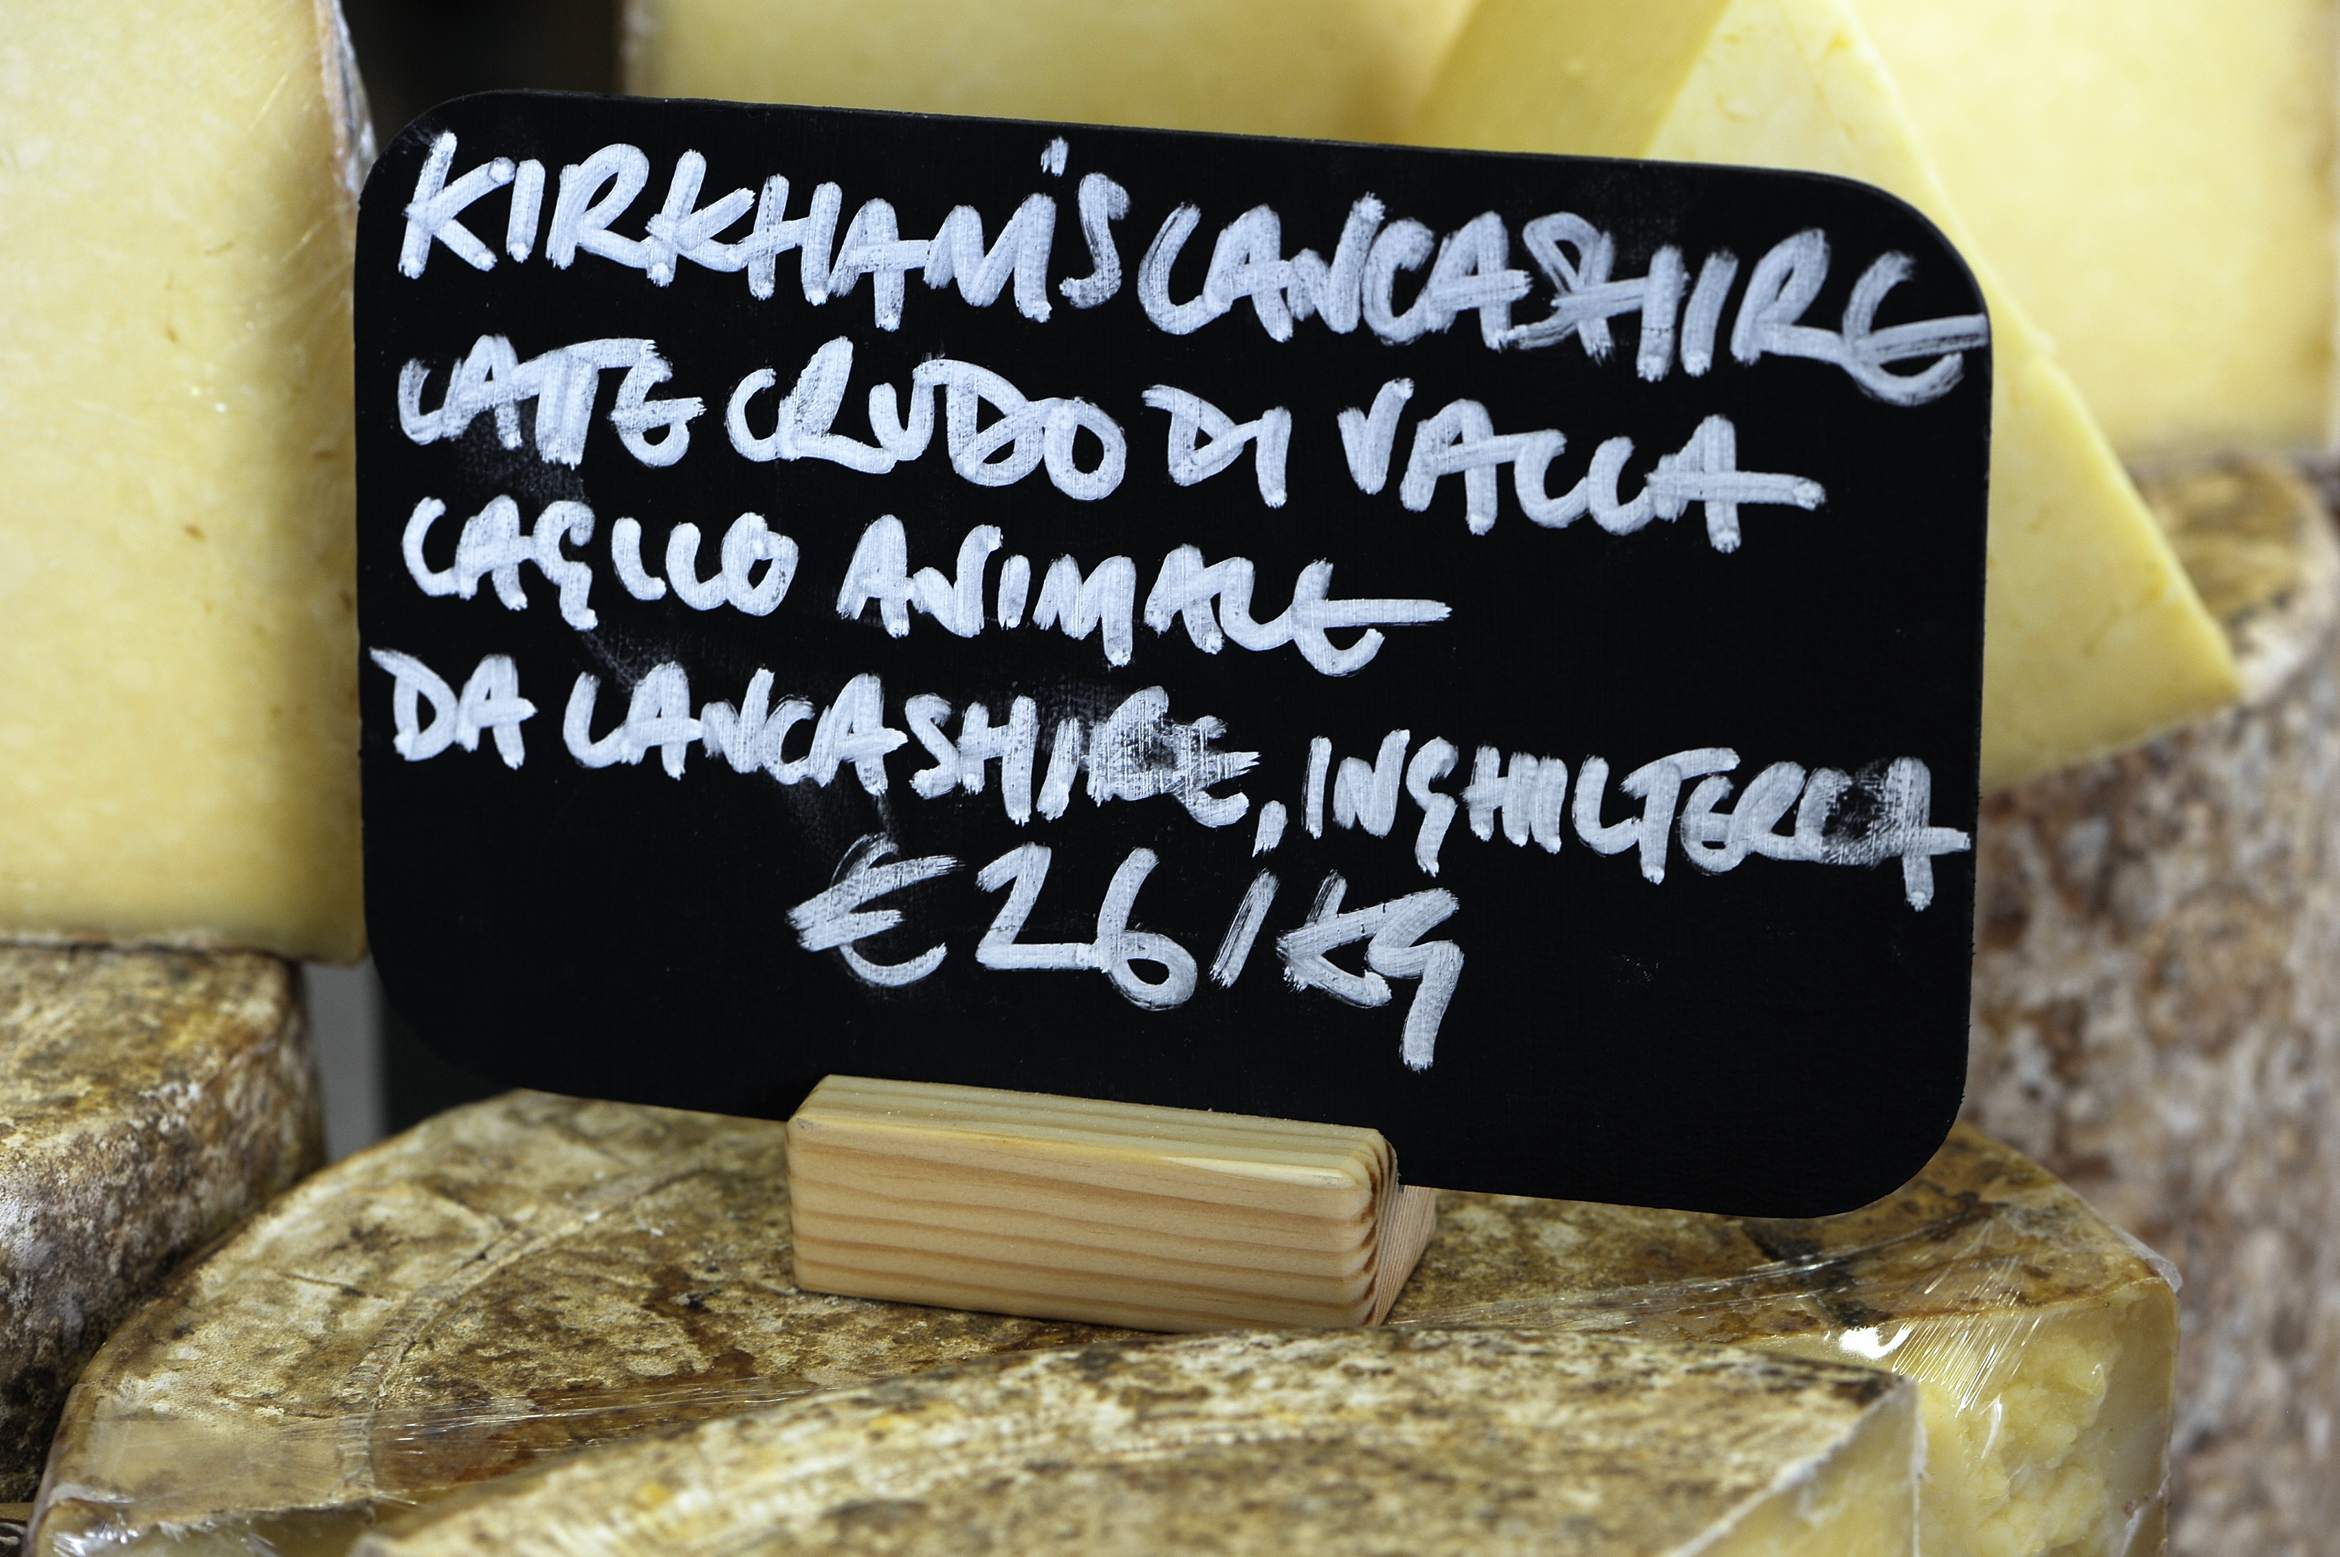 KIRKHAM'S LANCASHIRE
LATTE CRUDO DI VACCA
CAGLIO ANIMALE
DA LANCASHIRE, INGHILTERRA
€ 26/KG